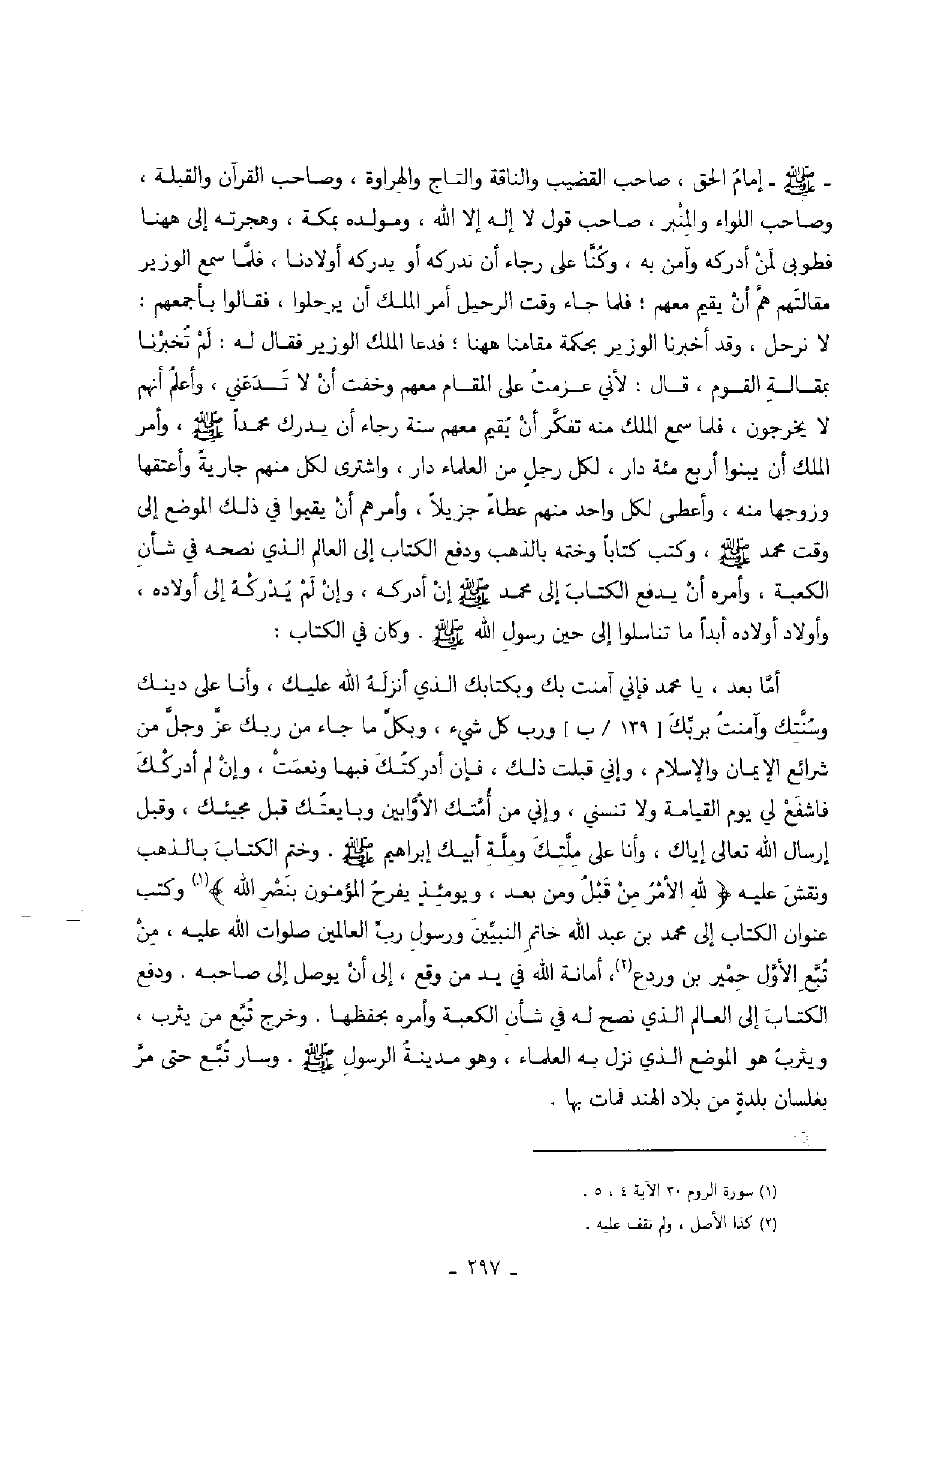 - ﷺ - إمامُ الحق ، صاحب القضيب والناقة والتاج والهراوة ، وصاحب القرآن والقبلة ،
وصاحب اللواء والمِنْبر ، صاحب قول لا إله إلا الله ، ومولده بمكة ، وهجرته إلى ههنا
فطوبى لمَنْ أدركه وآمن به ، وكُنَّا على رجاء أن ندركه أو يدركه أولادنا ، فلَمَّا سمع الوزير
مقالتَهم همَّ أنْ يقيم معهم ؛ فلما جاء وقت الرحيل أمر الملك أن يرحلوا ، فقالوا بأجمعهم :
لا نرحل ، وقد أخبرنا الوزير بحكمة مقامنا ههنا ؛ فدعا الملك الوزير فقال له : لَمْ تُخبرْنا
بمقالة القوم ، قال : لأني عزمتُ على المقام معهم وخفت أنْ لا تَدَعَني ، وأعلمُ أنهم
لا يخرجون ، فلما سمع الملك منه تفكَّر أنْ يُقيم معهم سنة رجاء أن يدرك محمداً ﷺ ، وأمر
الملك أن يبنوا أربع مئة دار ، لكل رجلٍ من العلماء دار ، واشترى لكل منهم جاريةً وأعتقها
وزوجها منه ، وأعطى لكل واحد منهم عطاءً جزيلاً ، وأمرهم أنْ يقيموا في ذلك الموضع إلى
وقت محمد ﷺ ، وكتب كتاباً وختمه بالذهب ودفع الكتاب إلى العالم الذي نصحه في شأن
الكعبة ، وأمره أنْ يدفع الكتابَ إلى محمد ﷺ إنْ أدركه ، وإنْ لَمْ يُدْركْهُ إلى أولاده ،
وأولاد أولاده أبداً ما تناسلوا إلى حين رسول الله ﷺ . وكان في الكتاب :
أمَّا بعد ، يا محمد فإني آمنت بك وبكتابك الذي أنزلَهُ الله عليك ، وأنا على دينك
وسُنَّتك وآمنتُ بربِّكَ [ ١٣٩ / ب ] ورب كل شيء ، وبكلِّ ما جاء من ربك عزَّ وجلَّ من
شرائع الإيمان والإسلام ، وإني قبلت ذلك ، فإن أدركتُكَ فبها ونعمَتْ ، وإنْ لم أدركْكَ
فاشفَعْ لي يوم القيامة ولا تنسني ، وإني من أُمَّتك الأوَّابين وبايعتُك قبل مجيئك ، وقبل
إرسال الله تعالى إياك ، وأنا على مِلَّتِكَ ومِلَّةِ أبيك إبراهيم ﷺ . وختم الكتابَ بالذهب
ونقشَ عليه ﴿ للهِ الأمْرُ مِنْ قَبْلُ ومن بعد ، ويومئذٍ يفرحُ المؤمنون بنَصْرِ الله ﴾(١) وكتب
عنوان الكتاب إلى محمد بن عبد الله خاتم النبيِّينَ ورسولِ ربِّ العالمين صلوات الله عليه ، مِنْ
تُبَّعٍ الأوَّل حِمْير بن وردع(٢)، أمانة الله في يد من وقع ، إلى أنْ يوصل إلى صاحبه . ودفع
الكتابَ إلى العالم الذي نصح له في شأن الكعبة وأمره بحفظها . وخرج تُبَّع من يثرب ،
ويثربُ هو الموضع الذي نزل به العلماء ، وهو مدينةُ الرسول ﷺ . وسار تُبَّع حتى مرَّ
بغلسان بلدةٍ من بلاد الهند فمات بها .
(١) سورة الروم ٣٠ الآية ٤ ، ٥ .
(٢) كذا الأصل ، ولم نقف عليه .
- ٢٩٧ -